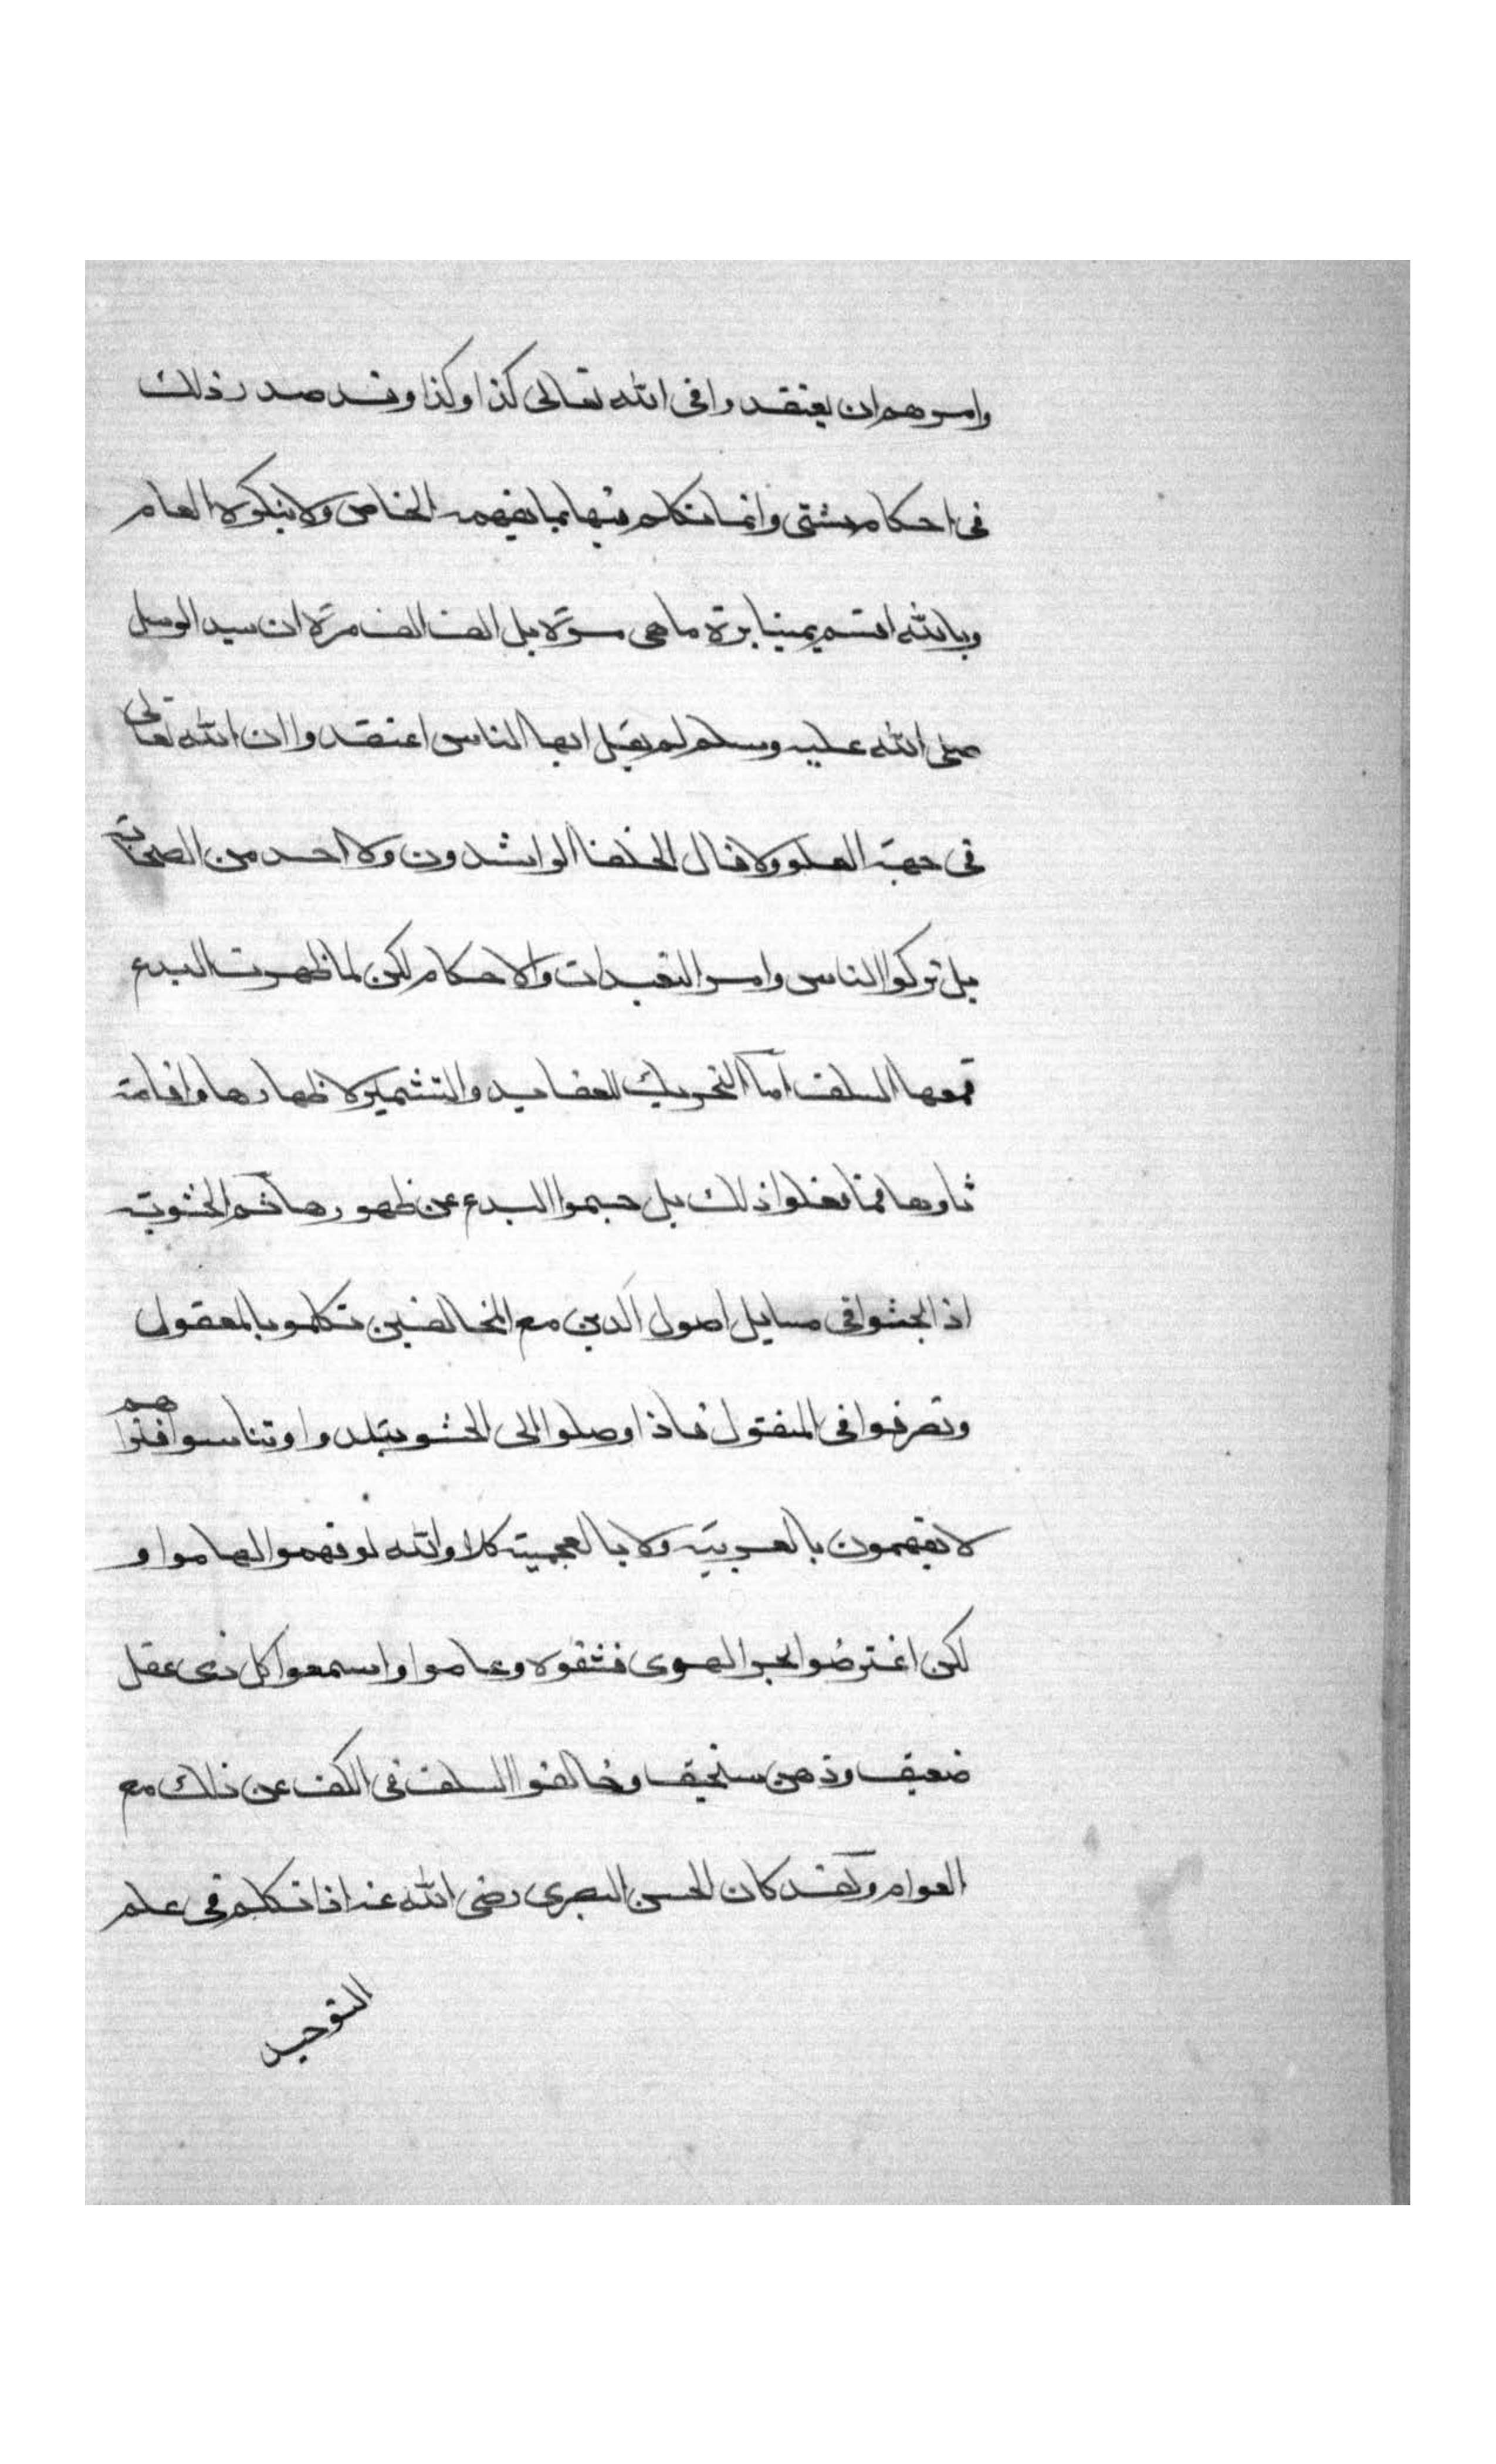 وامرهم ان يعتقدوا فى الله تعالى كذا وكذا وقد صدر ذلك
فى احكام شتى وانما تكلم فيها بما يفهمه الخاص ولا ينكره العام
وبالله اقسم يمينا برة ما هى مرة بل الف الف مرة ان سيد الرسل
صلى الله عليه وسلم لم يقل ايها الناس اعتقدوا ان الله تعالى
فى جهة العلو ولا قال الخلفا الراشدون ولا احد من الصحابة
بل تركوا الناس وامر التعبدات والاحكام لكن لما ظهرت البدع
قمعها السلف اما التحريك للعقايد والتشمير لاظهارها واقامة
ثارها فما فعلوا ذلك بل حسموا البدع عن ظهورها ثم الحشوية
اذا بحثوا فى مسايل اصول الدين مع المخالفين تكلموا بالمعقول
وتصرفوا فى المنقول فاذا وصلوا الى الحشو تبلدوا وتناسوا فتراهم
لا يفهمون بالعربية ولا بالعجمية كلا والله لو فهموا لهاموا و
لكن اعترضوا بحر الهوى فشقوه وعاموا واسمعوا كل ذى عقل
ضعيف وذهن سخيف وخالفوا السلف فى الكف عن ذلك مع
العوام ولقد كان الحسن البصرى رضى الله عنه اذا تكلم فى علم
التوحيد